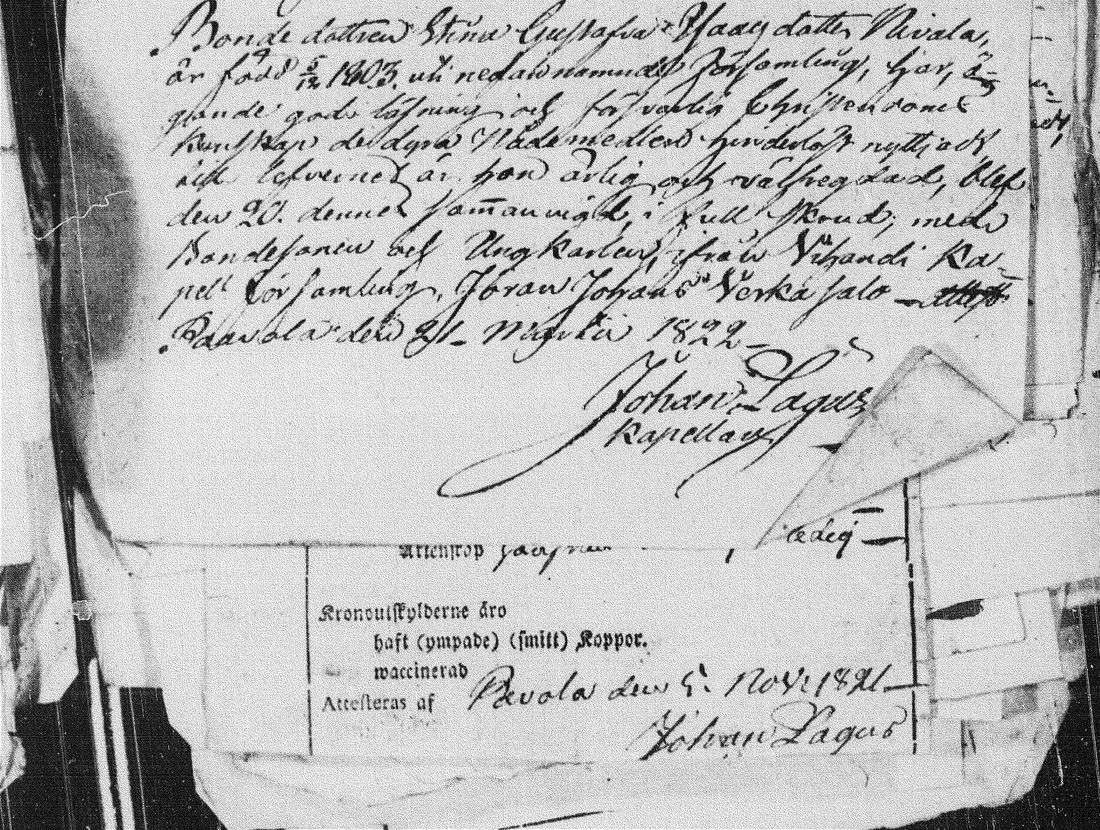 Bonde dottren Stina Gustafva Isaacs dotter Nivala,
är född 5/12 1803. uti nedannamnde Församling, har, ä-
gande god läsning och försvarlig Christendoms
kunskap de dyra Nådemedlen hinderlöst nyttjat
till lefvernet är hon ärlig och välfregdad, blef
den 20. dennes samanvigd, i full skrud, med
Bondesonen och Ungkarlen, ifrån Vihandi Ka-
pell församling, Jöran Johans Verkasalo
Paavola den 21. Martii 1822
Johan Lagus
Kapellan
ledig
Attenskap
Kronoutskylderne äro
haft (ympade) (smitt) Koppor.
waccinerad
Attesteras af Pavola den 5. Nov. 1821
Johan Lagus